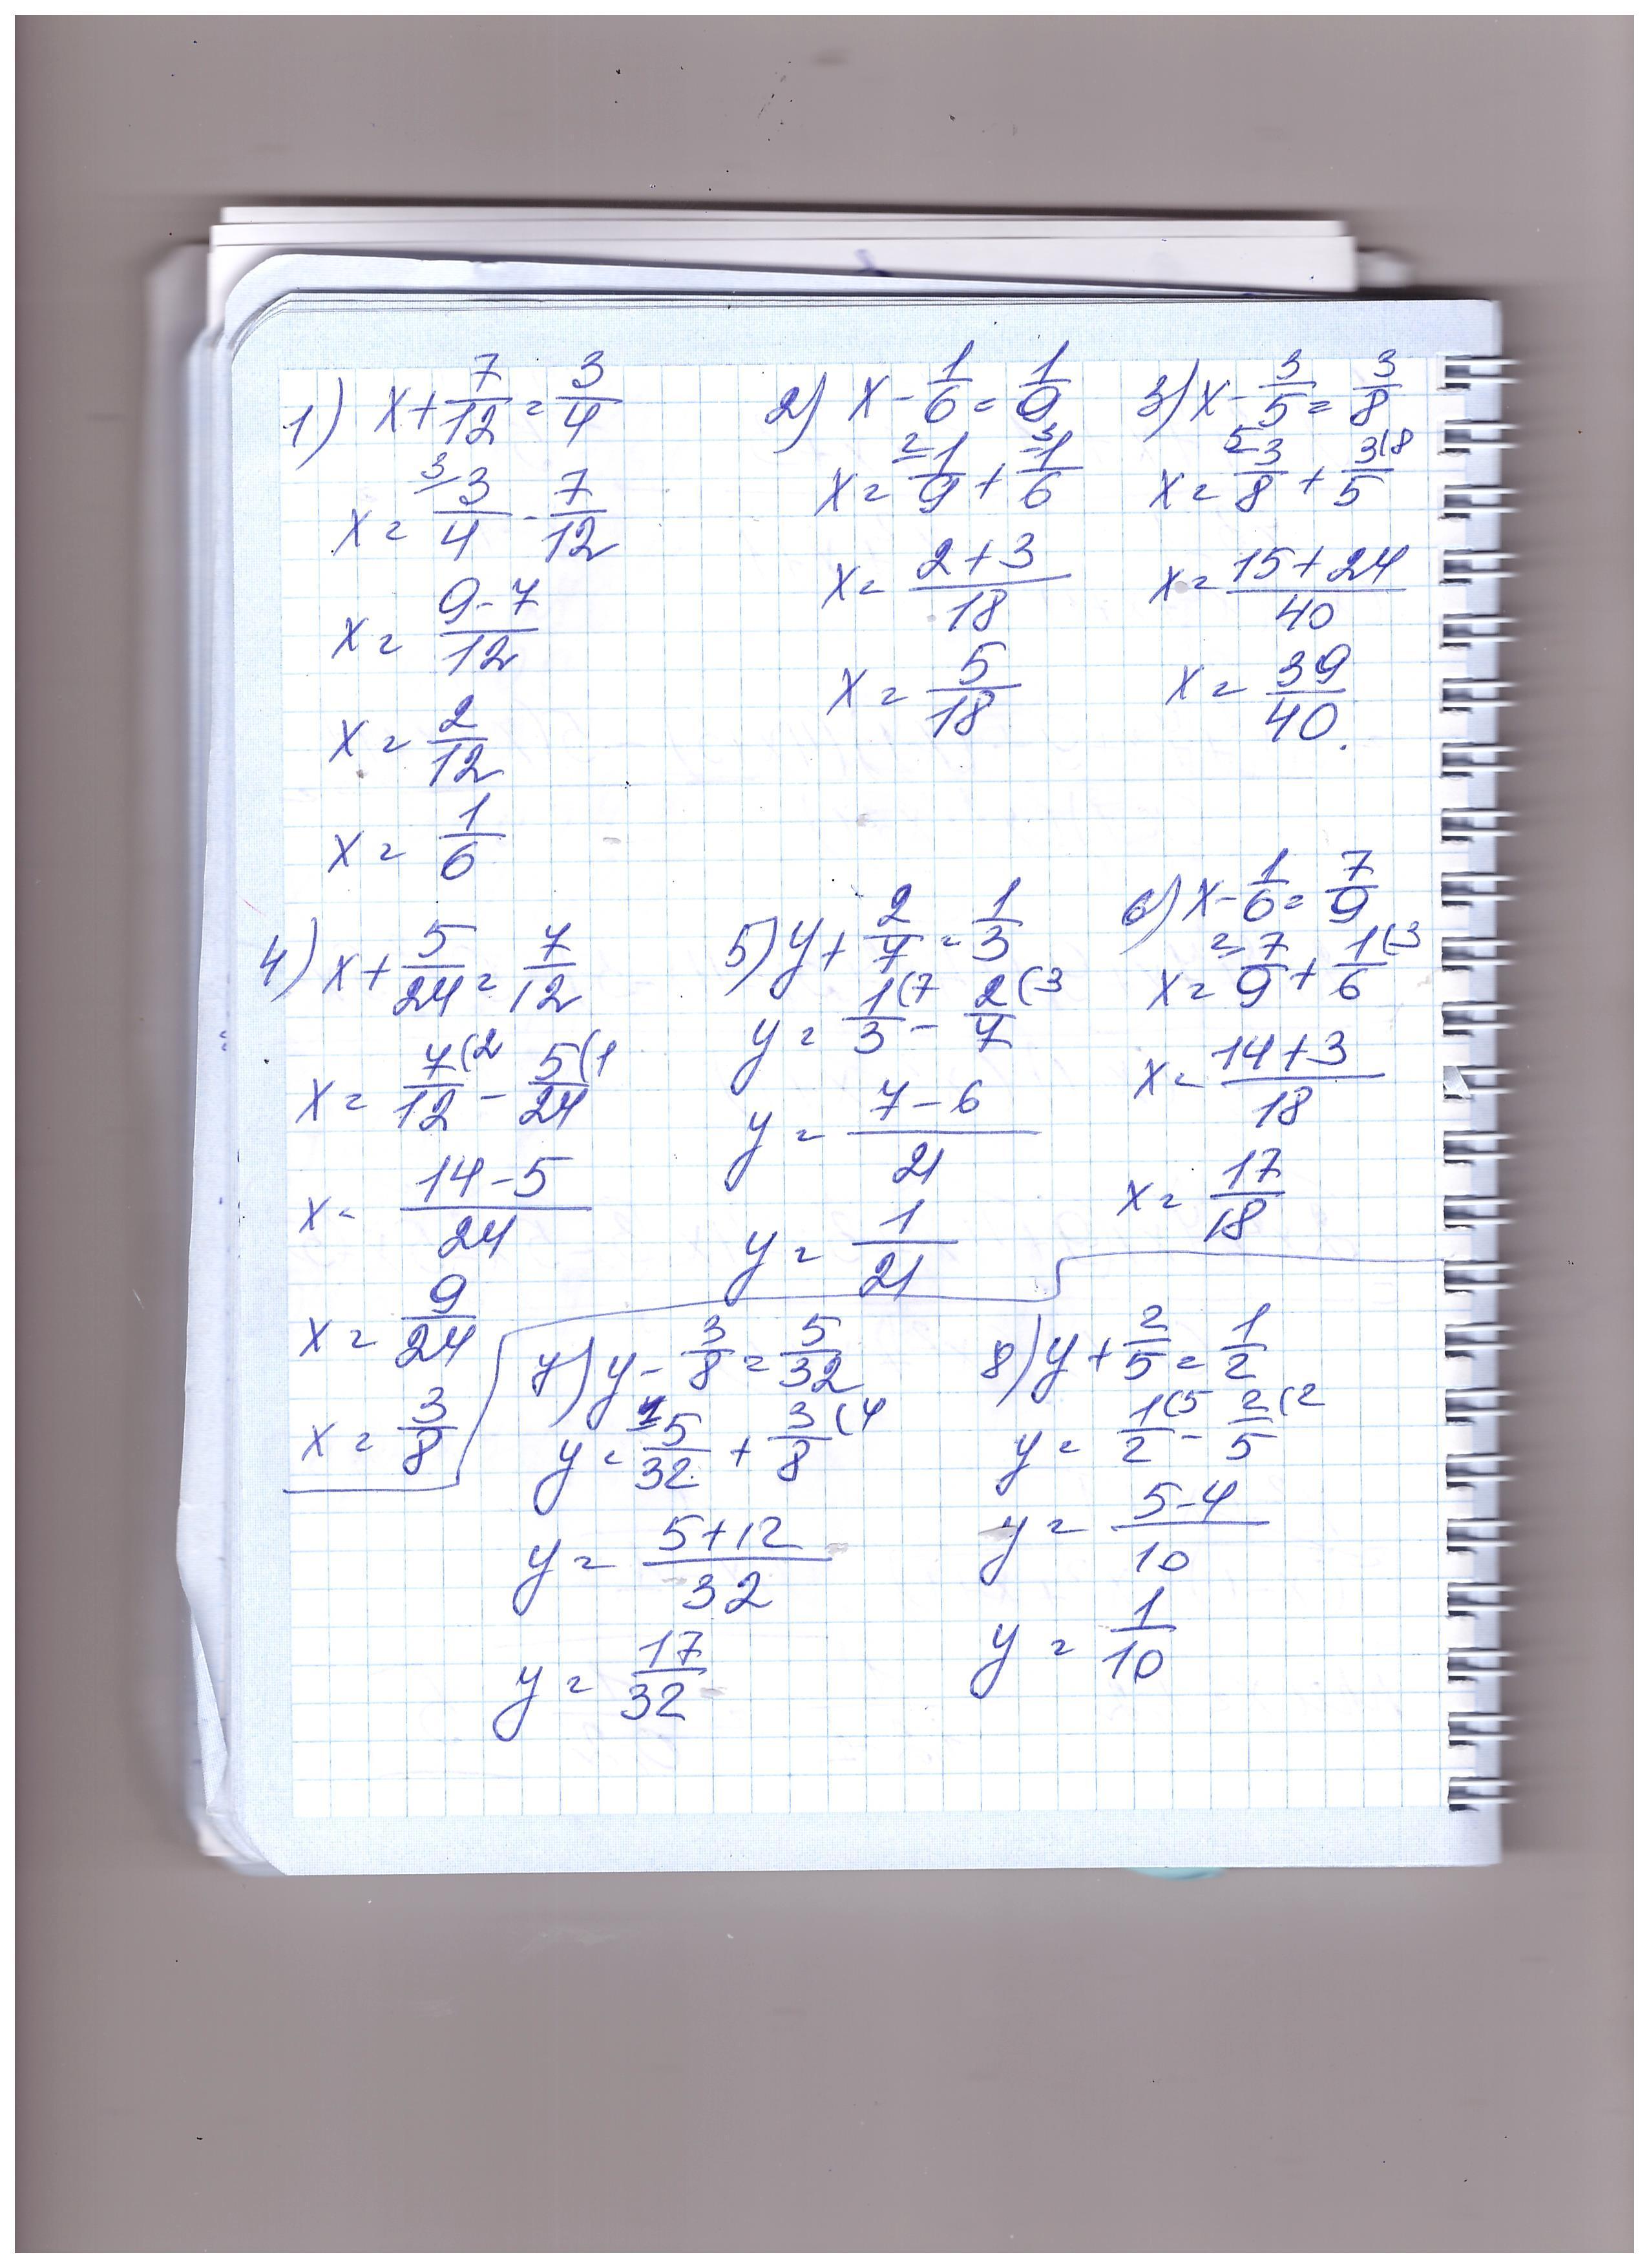 1) x + 7/12 = 3/4
x = 3/4 - 7/12
x = (9-7)/12
x = 2/12
x = 1/6
2) x - 1/6 = 1/9
x = 1/9 + 1/6
x = (2+3)/18
x = 5/18
3) x - 3/5 = 3/8
x = 3/8 + 3/5
x = (15+24)/40
x = 39/40.
4) x + 5/24 = 7/12
x = 7/12 (2 - 5/24 (1
x = (14-5)/24
x = 9/24
x = 3/8
5) y + 2/7 = 1/3
y = 1/3 (7 - 2/7 (3
y = (7-6)/21
y = 1/21
6) x - 1/6 = 7/9
x = 7/9 + 1/6 (3
x = (14+3)/18
x = 17/18
7) y - 3/8 = 5/32
y = 5/32 + 3/8 (4
y = (5+12)/32
y = 17/32
8) y + 2/5 = 1/2
y = 1/2 (5 - 2/5 (2
y = (5-4)/10
y = 1/10